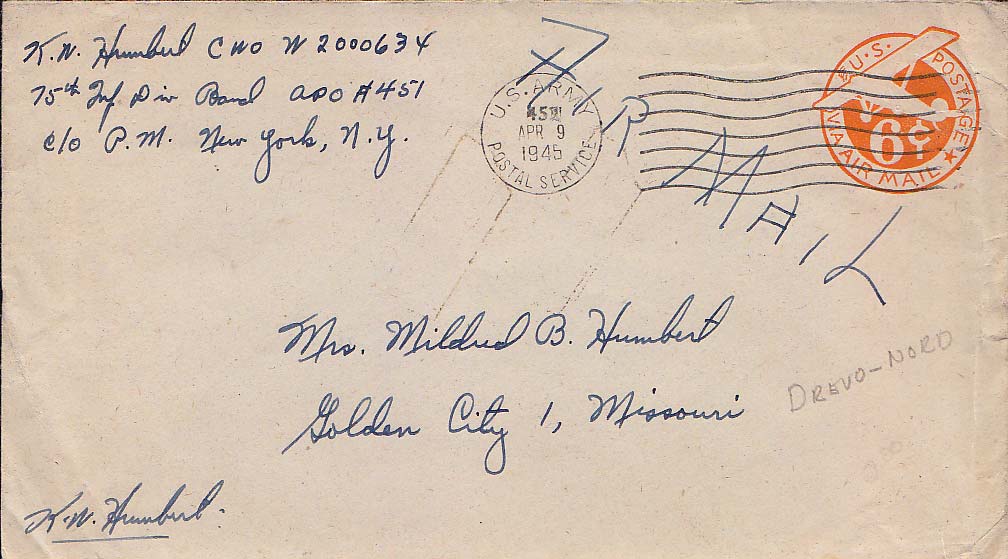 K.W. Humberd CWO W 2000634
75th Inf Div Band APO #451
c/o P.M. New York, N.Y.
U.S. ARMY
APR 9
1945
POSTAL SERVICE
U.S. POSTAGE
6¢
VIA AIR MAIL
AIR MAIL
Mrs. Mildred B. Humberd
Golden City 1, Missouri
DREVO-NORD
K.W. Humberd.